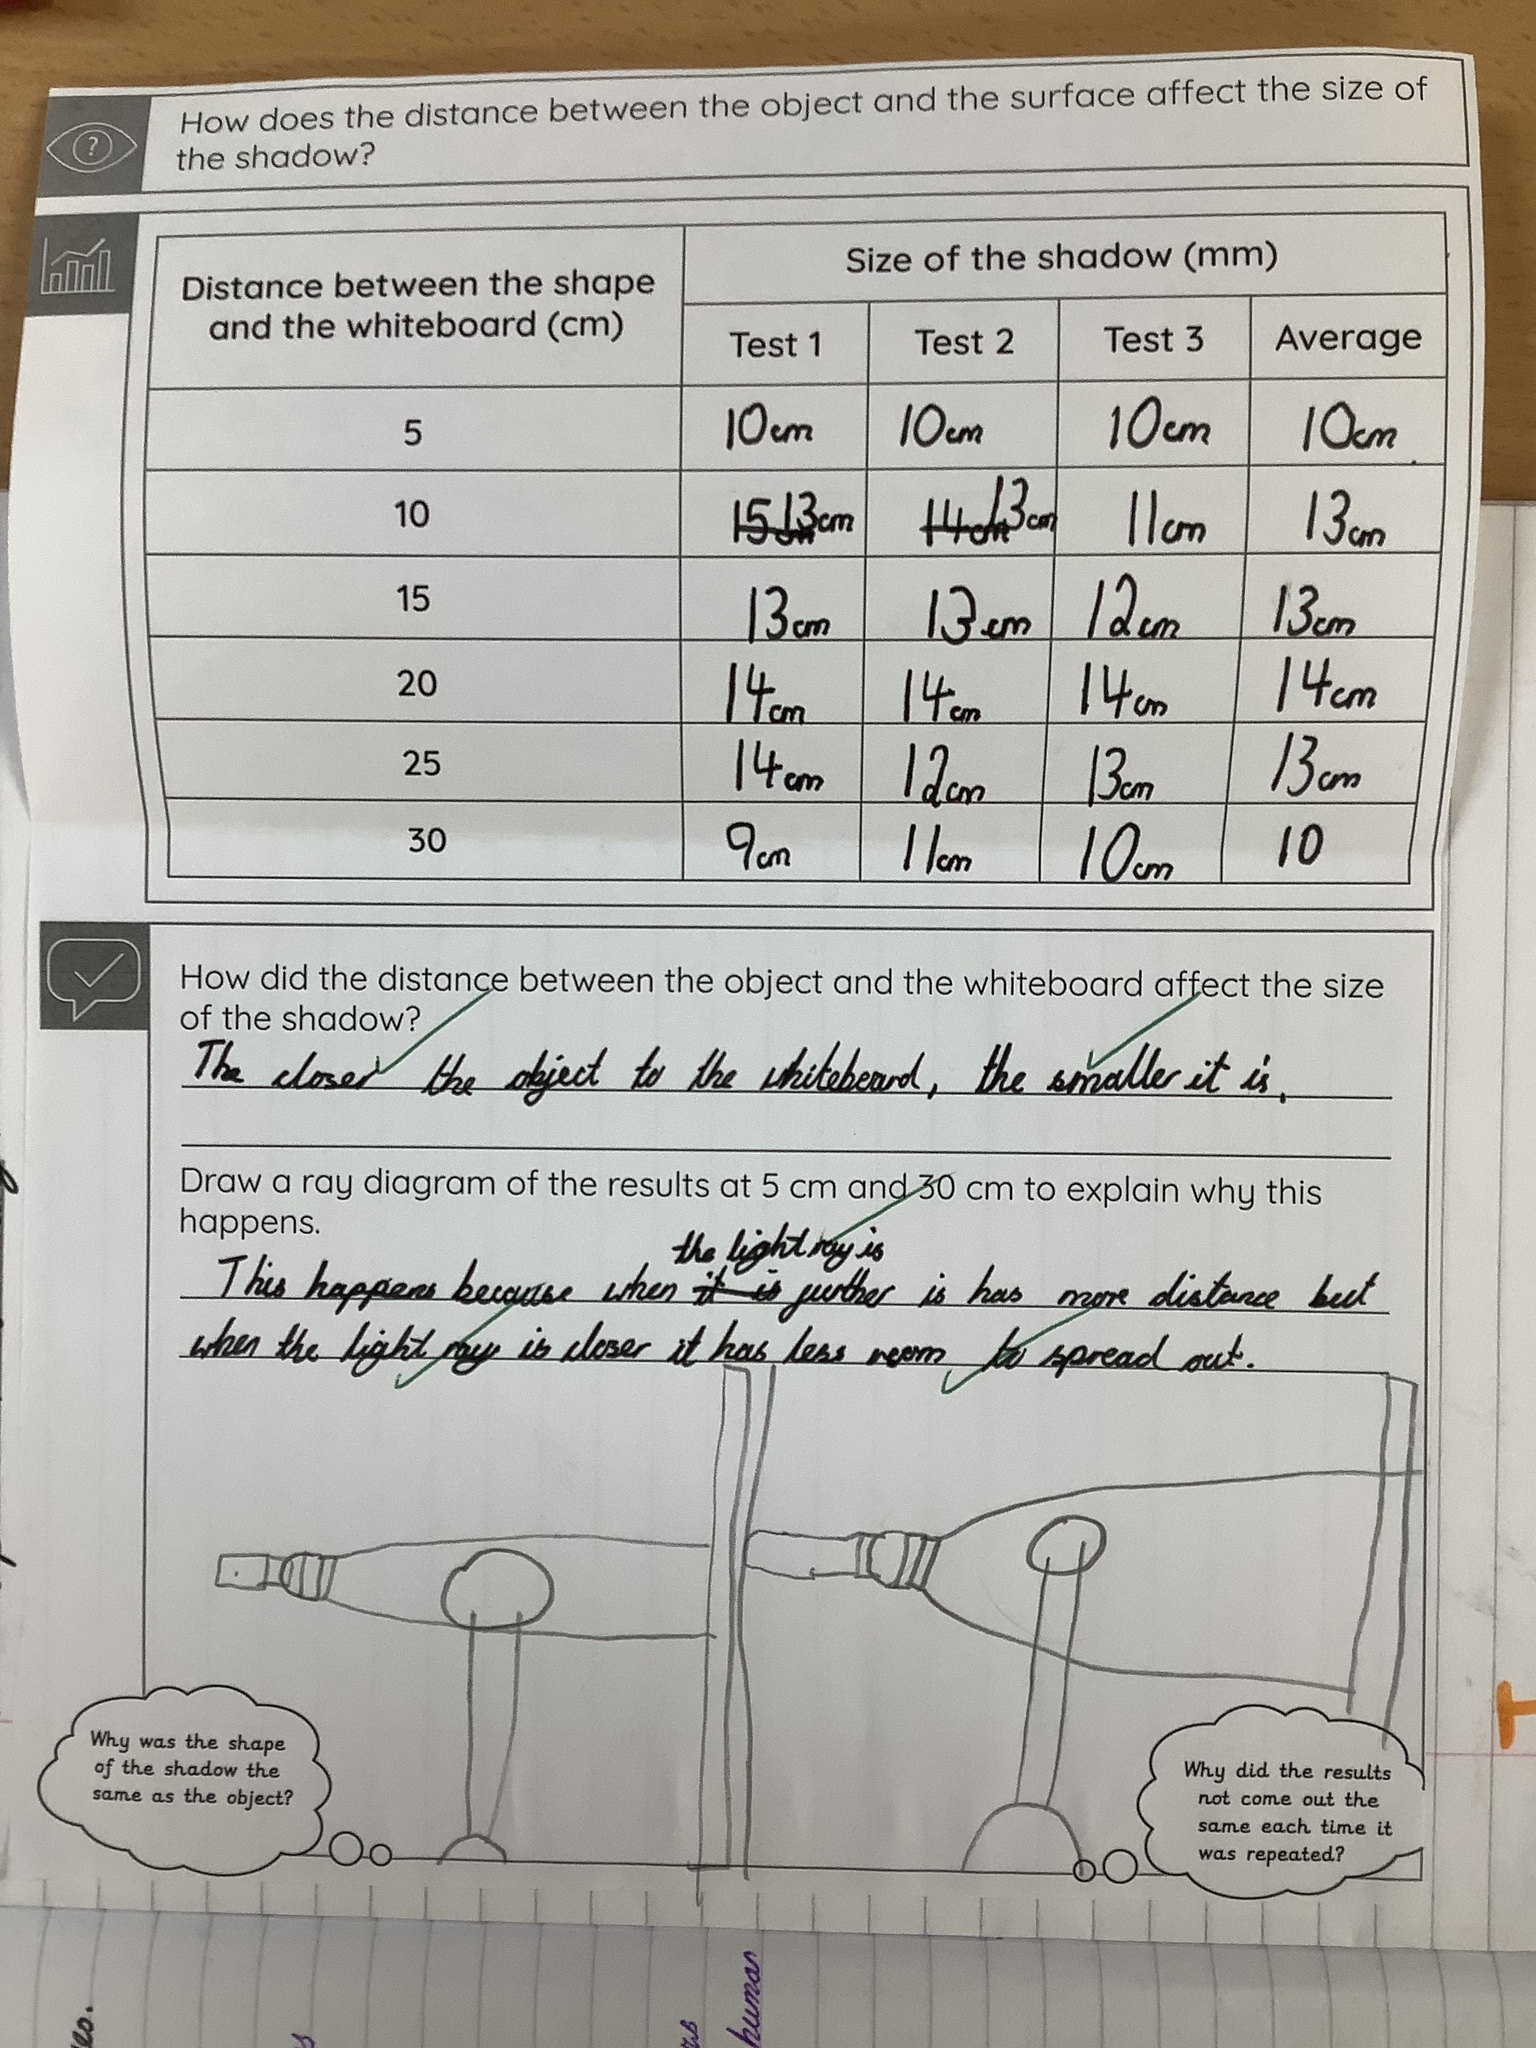 How does the distance between the object and the surface affect the size of
the shadow?
?
Distance between the shape
and the whiteboard (cm)
Size of the shadow (mm)
Test 1 Test 2 Test 3 Average
5 10cm 10cm 10cm 10cm
10 15cm 13cm 14cm 13cm 11cm 13cm
15 13cm 13cm 12cm 13cm
20 14cm 14cm 14cm 14cm
25 14cm 12cm 13cm 13cm
30 9cm 11cm 10cm 10
How did the distance between the object and the whiteboard affect the size
of the shadow?
The closer the object to the whiteboard, the smaller it is.
Draw a ray diagram of the results at 5 cm and 30 cm to explain why this
happens.
the light ray is
This happens because when it is further is has more distance but
when the light ray is closer it has less room to spread out.
Why was the shape
of the shadow the
same as the object?
Why did the results
not come out the
same each time it
was repeated?
human